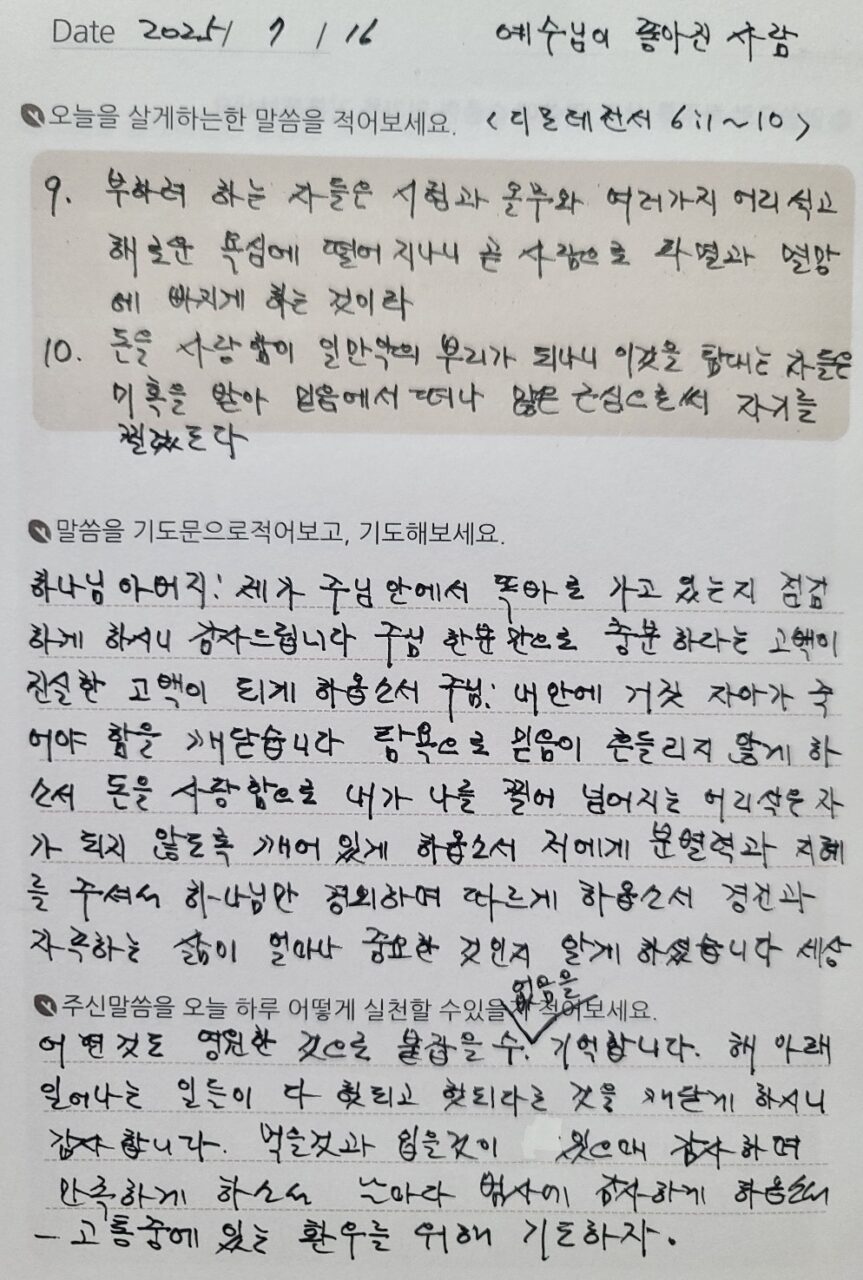 Date 2025 / 7 / 16 예수님이 좋아진 사람
오늘을 살게하는한 말씀을 적어보세요. <디모데전서 6:1~10>
9. 부하려 하는 자들은 시험과 올무와 여러가지 어리석고
해로운 욕심에 떨어지나니 곧 사람으로 파멸과 멸망
에 빠지게 하는 것이라
10. 돈을 사랑함이 일만악의 뿌리가 되나니 이것을 탐내는 자들은
미혹을 받아 믿음에서 떠나 많은 근심으로써 자기를
찔렀도다
말씀을 기도문으로적어보고, 기도해보세요.
하나님 아버지! 제가 주님 안에서 똑바로 가고 있는지 점검
하게 하시니 감사드립니다 주님 한분만으로 충분하라는 고백이
진실한 고백이 되게 하옵소서 주님! 내안에 거짓 자아가 죽
어야 함을 깨닫습니다 탐욕으로 믿음이 흔들리지 않게 하
소서 돈을 사랑함으로 내가 나를 찔러 넘어지는 어리석은 자
가 되지 않도록 깨어 있게 하옵소서 저에게 분별력과 지혜
를 주셔서 하나님만 경외하며 따르게 하옵소서 경건과
자족하는 삶이 얼마나 중요한 것인지 알게 하셨습니다 세상
주신말씀을 오늘 하루 어떻게 실천할 수있을지 적어보세요.
없음을
어떤것도 영원한 것으로 붙잡을 수 기억합니다. 해 아래
일어나는 일들이 다 헛되고 헛되다는 것을 깨닫게 하시니
감사합니다. 먹을것과 입을것이 있으매 감사하며
만족하게 하소서 날마다 범사에 감사하게 하옵소서
- 고통중에 있는 환우를 위해 기도하자.